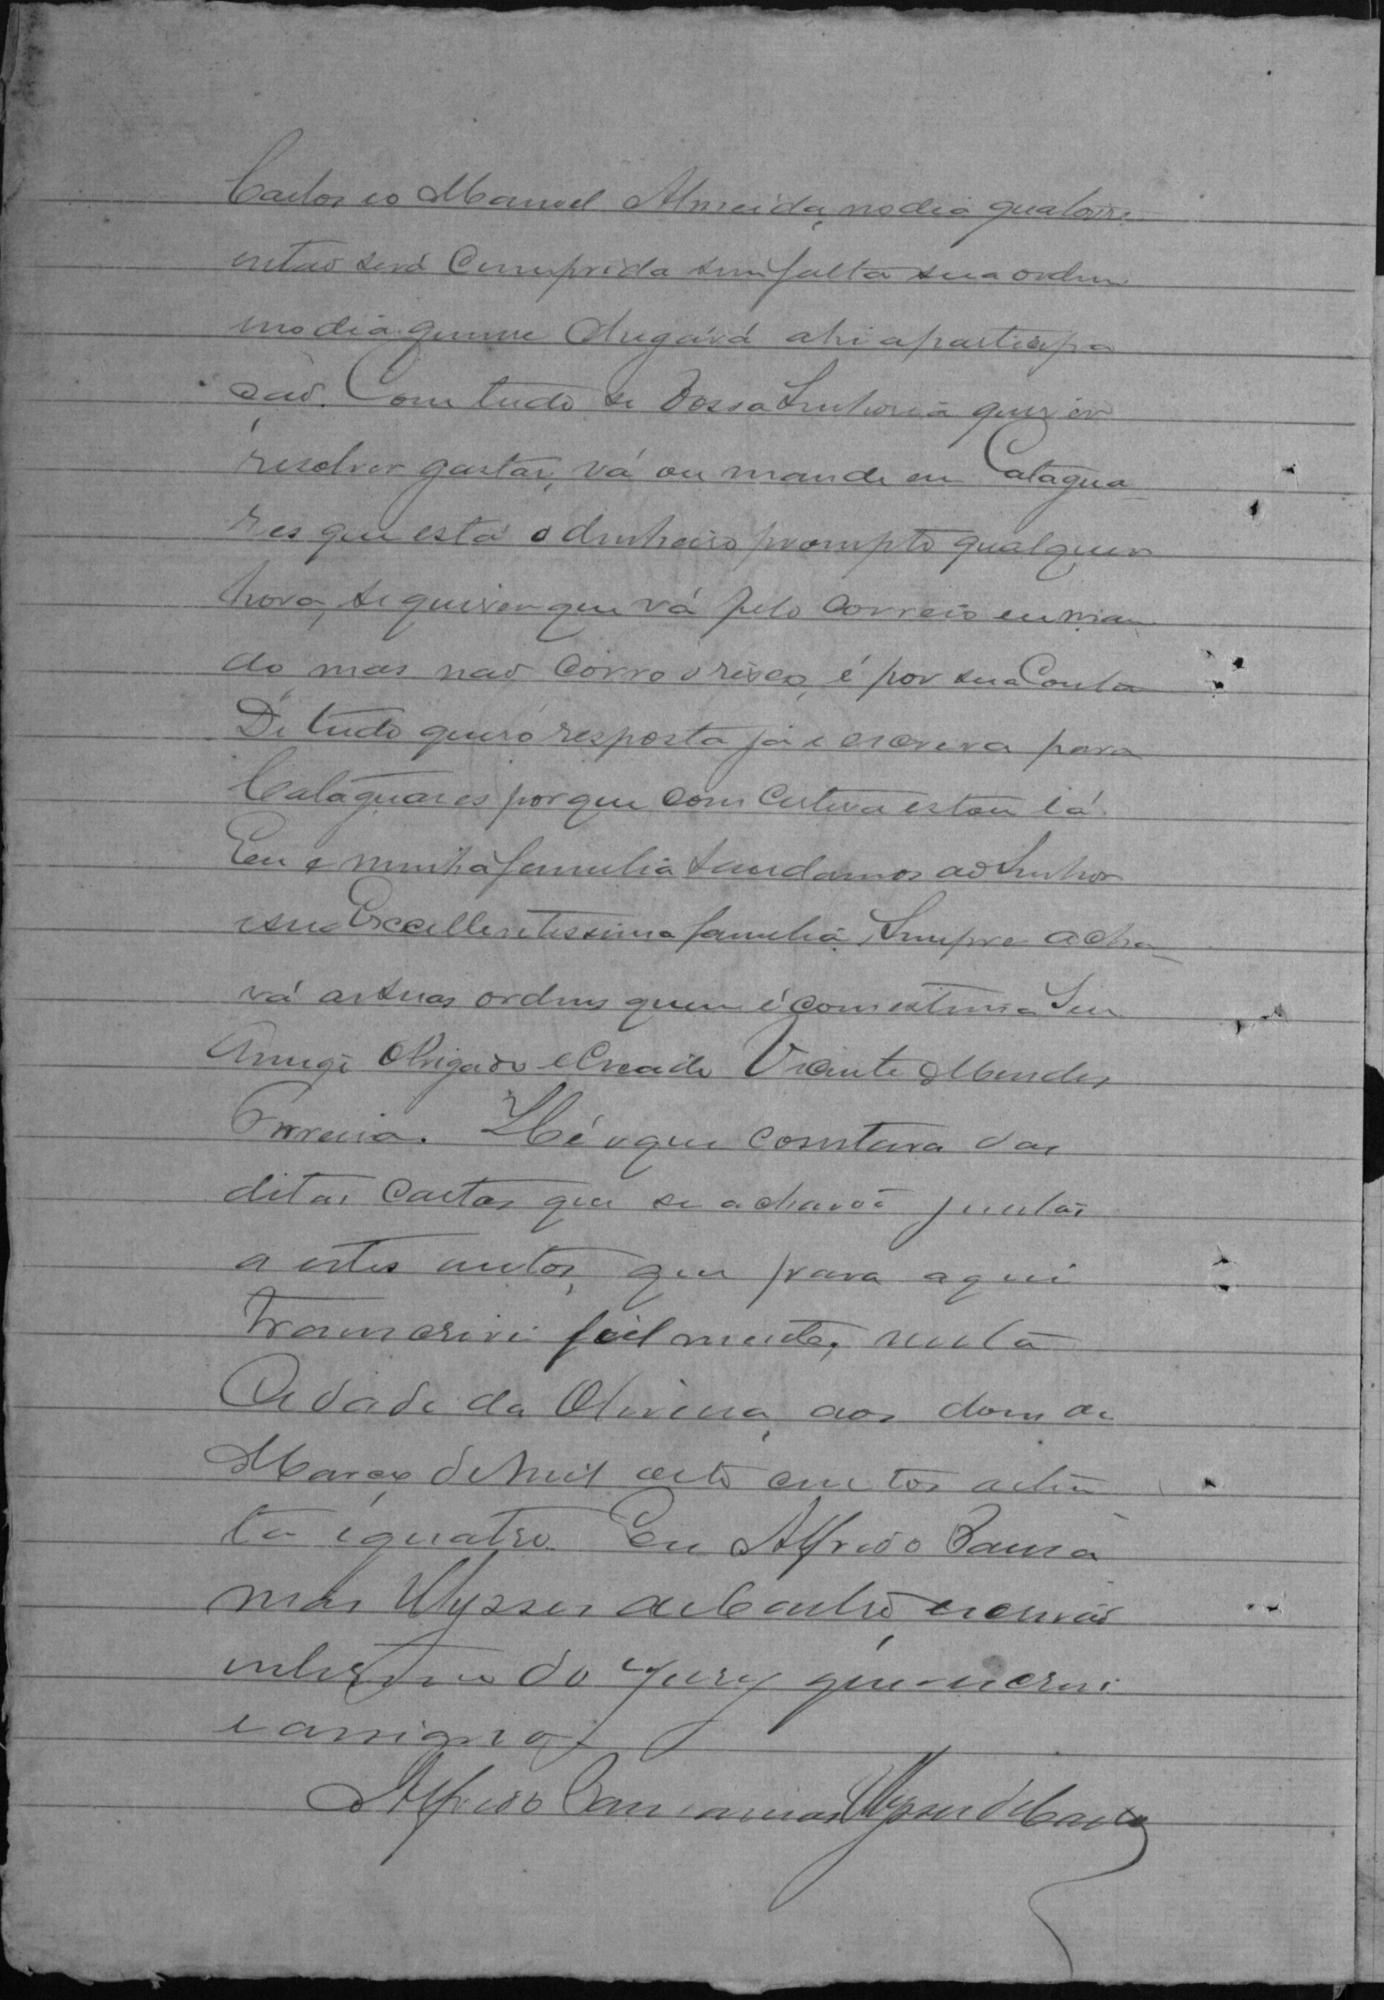 Carlos e o Manoel Almeida, no dia quatorze
então será cumprida sem falta sua ordem
no dia quinze chegárá ahi a participa
ção. Com tudo se Vossa Senhoria quizer
resolver gastar, vá ou mande em Catagua
zes que está o dinheiro prompto qualquer
hora, se quizer que vá pelo correio eu man
do mas não corro o risco, é por sua Conta
De tudo quero resposta já e escreva para
Cataguazes porque com certeza estou lá.
Eu e minha familia saudamos ao Senhor
e sua Excellentissima familia, Sempre acha
rá as suas ordens quem é com estima Seu
Amigo Obrigado e Creado Vicente Mendes
Correia. Hé o que constava das
ditas cartas que se achavão juntas
a estes autos, que para aqui
transcrevi fielmente, nesta
Cidade da Oliveira, aos dous de
Março de mil oito centos oiten
ta e quatro. Eu Alfredo Camara
mas Ulysses de Castro, escrivão
interino do Jury que escrevi
e assigno.
Alfredo Ulysses de Castro